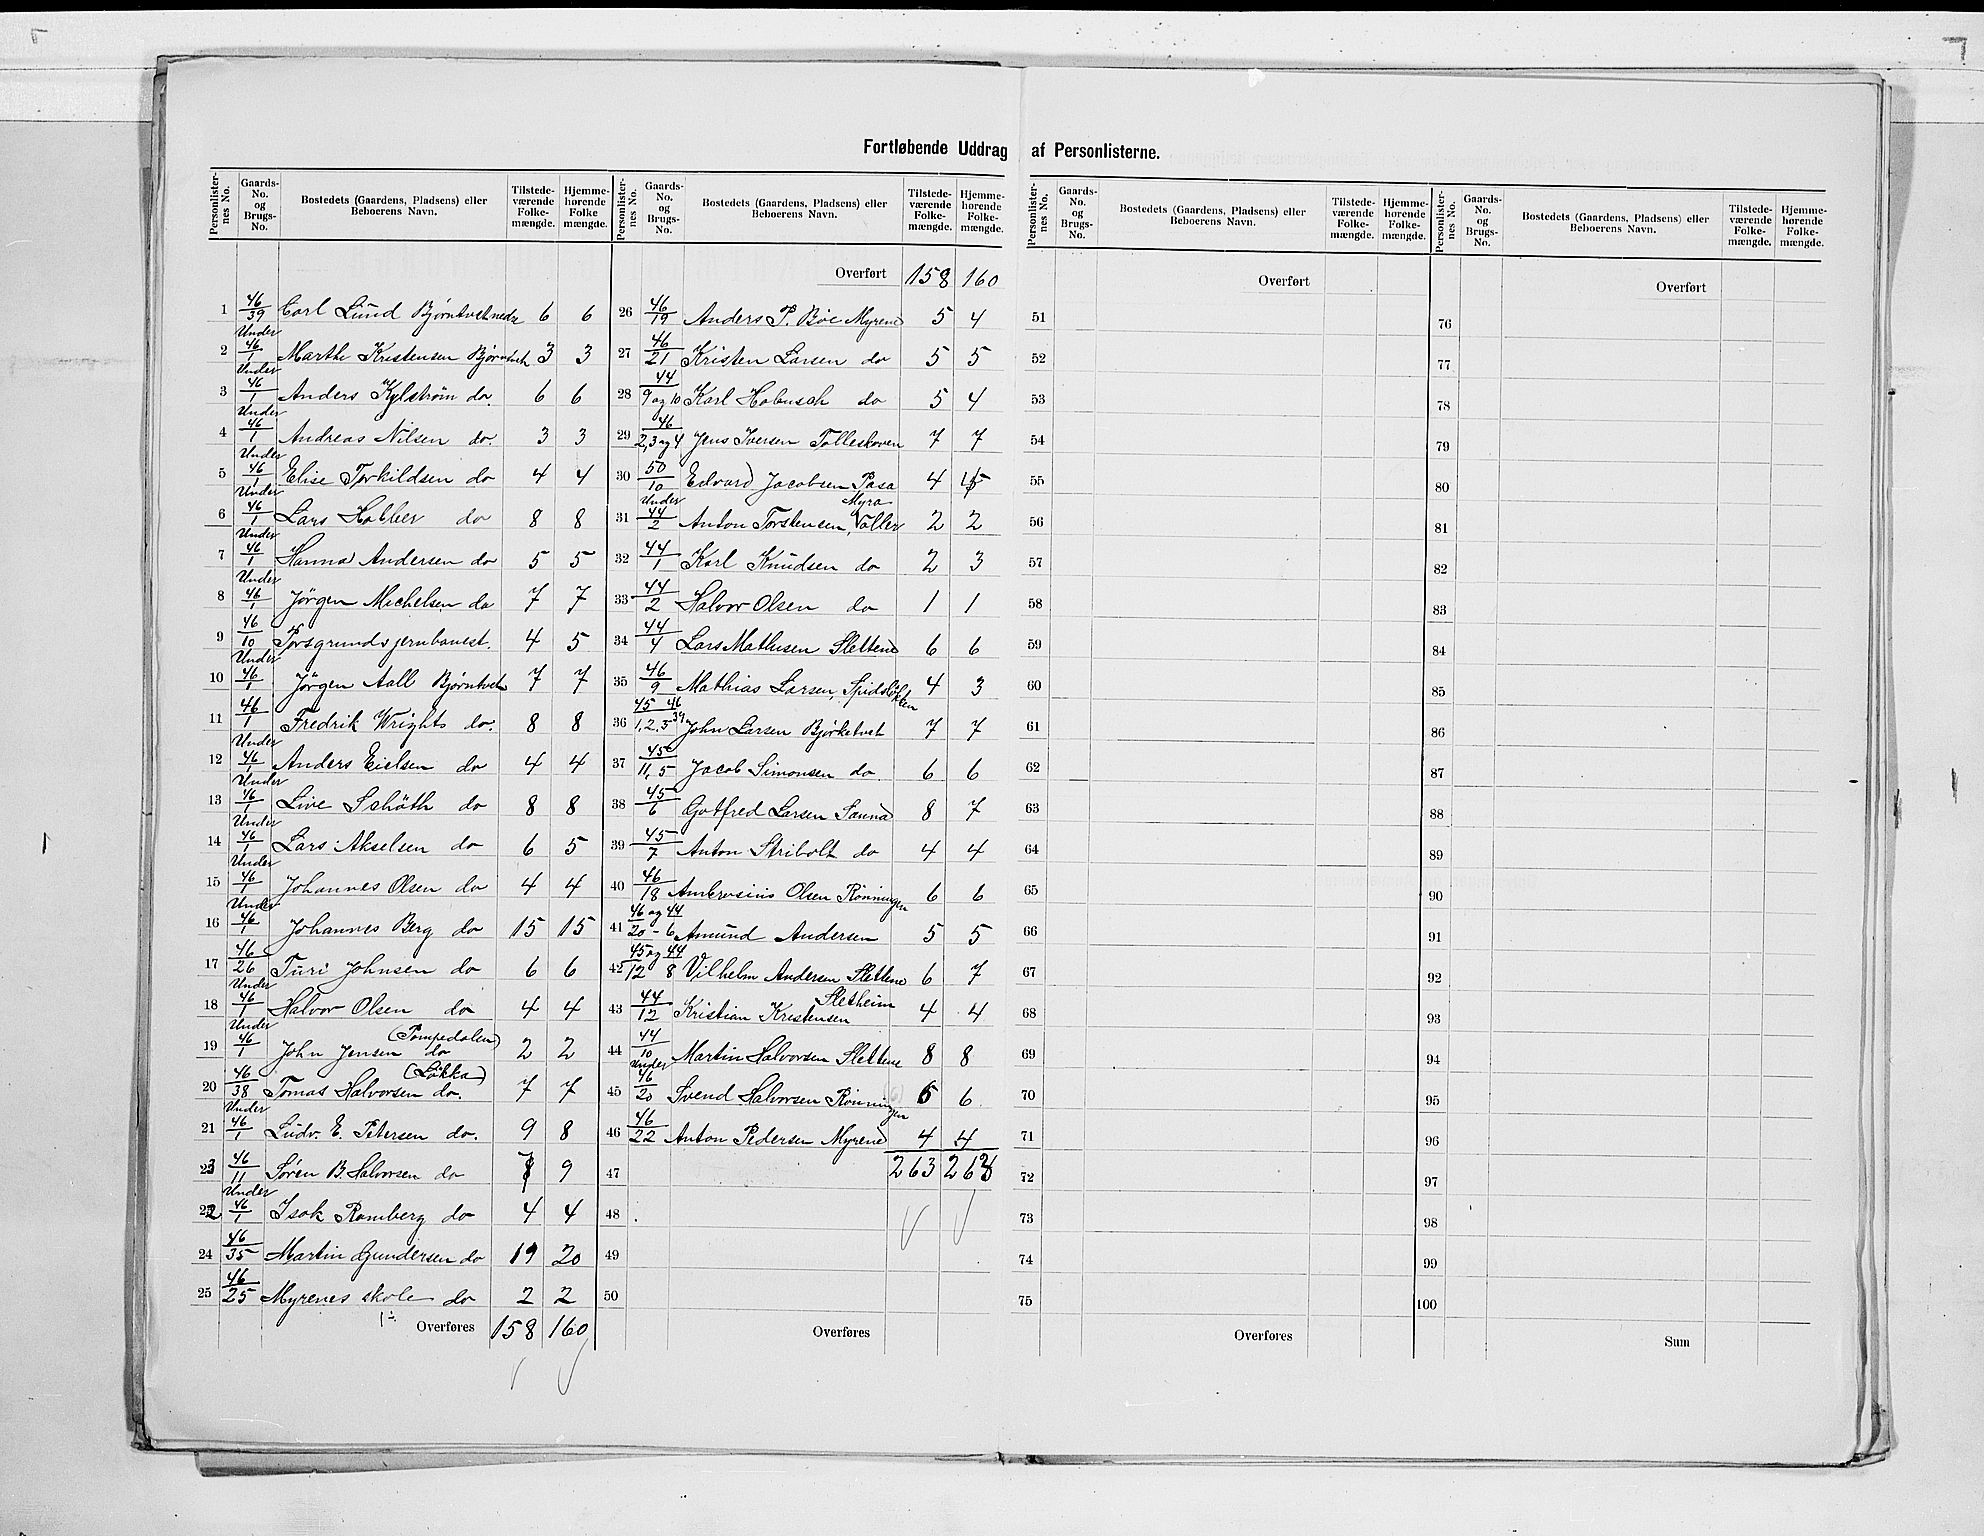 Fortløbende Uddrag af Personlisterne.
Personlisternes No. Gaards-No. og Brugs-No. Bostedets (Gaardens, Pladsens) eller Beboerens Navn. Tilstedeværende Folkemængde. Hjemmehørende Folkemængde.
1 46/39 Carl Lund Bjørntvet nedr 6 6
2 Under 46/1 Marthe Kristensen Bjørntvet 3 3
3 Under 46/1 Anders Kylstrøm do. 6 6
4 Under 46/1 Andreas Nilsen do. 3 3
5 Under 46/1 Elise Torkildsen do 4 4
6 Under 46/1 Lars Holber do 8 8
7 Under 46/1 Hanna Andersen do 5 5
8 Under 46/1 Jørgen Michelsen do 7 7
9 46/10 Porsgrunds jernbanest. 4 5
10 Under 46/1 Jørgen Aall Bjørntvet 7 7
11 46/1 Fredrik Wrights do. 8 8
12 Under 46/1 Anders Eielsen do 4 4
13 Under 46/1 Live Schöth do 8 8
14 Under 46/1 Lars Akselsen do 6 5
15 Under 46/1 Johannes Olsen do 4 4
16 Under 46/1 Johannes Berg do 15 15
17 46/26 Turi Johnsen do 6 6
18 Under 46/1 Halvor Olsen do 4 4
19 Under 46/1 John Jensen do (Pompedalen) 2 2
20 46/38 Tomas Halvorsen do. (Løkka) 7 7
21 Under 46/1 Ludv. E. Petersen do. 9 8
23 46/11 Søren B. Halvorsen do 9
22 Under 46/1 Isak Ramberg do 4 4
24 46/35 Martin Gundersen do 19 20
25 46/25 Myrenes skole do 2 2
Overføres 158 160
Personlisternes No. Gaards-No. og Brugs-No. Bostedets (Gaardens, Pladsens) eller Beboerens Navn. Tilstedeværende Folkemængde. Hjemmehørende Folkemængde.
Overført 158 160
26 46/19 Anders P. Böe Myrene 5 4
27 46/21 Kristen Larsen do 5 5
28 44/9 og 10 Karl Hobusch do 5 4
29 46/2, 3 og 4 Jens Iversen Tolleskoven 7 7
30 50/10 Edvard Jacobsen Pasa 4 5
31 Under 44/2 Anton Torstensen, Myra Valler 2 2
32 44/1 Karl Knudsen do 2 3
33 44/2 Halvor Olsen do 1 1
34 44/4 Lars Mathisen Slettene 6 6
35 46/9 Mathias Larsen, Spidsløkken 4 3
36 45/1, 2, 3 46/39 John Larsen Bjørketvet 7 7
37 45/11, 5 Jacob Simonsen do 6 6
38 45/6 Gotfred Larsen Sanna 8 7
39 45/7 Anton Stribolt do 4 4
40 46/18 Ambrosius Olsen Rønningen 6 6
41 46 og 44/20 - 6 Amund Andersen 5 5
42 45 og 44/12 8 Vilhelm Andersen Slettene 6 7
43 44/12 Kristian Kristensen Sletheim 4 4
44 44/10 Martin Halvorsen Slettene 8 8
45 Under 46/20 Svend Halvorsen Rønningen 6 6
46 46/22 Anton Pedersen Myrene 4 4
47 263 268
48
49
50
Overføres
Personlisternes No. Gaards-No. og Brugs-No. Bostedets (Gaardens, Pladsens) eller Beboerens Navn. Tilstedeværende Folkemængde. Hjemmehørende Folkemængde.
Overført
51
52
53
54
55
56
57
58
59
60
61
62
63
64
65
66
67
68
69
70
71
72
73
74
75
Overføres
Personlisternes No. Gaards-No. og Brugs-No. Bostedets (Gaardens, Pladsens) eller Beboerens Navn. Tilstedeværende Folkemængde. Hjemmehørende Folkemængde.
Overført
76
77
78
79
80
81
82
83
84
85
86
87
88
89
90
91
92
93
94
95
96
97
98
99
100
Sum